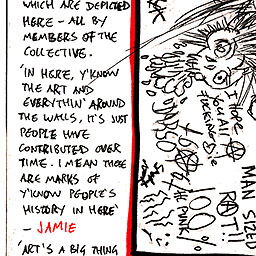 WHICH ARE DEPICTED
HERE - ALL BY
MEMBERS OF THE
COLLECTIVE.
'IN HERE, Y'KNOW
THE ART AND
EVERYTHIN' AROUND
THE WALLS, IT'S JUST
PEOPLE HAVE
CONTRIBUTED OVER
TIME. I MEAN THESE
ARE MARKS OF
Y'KNOW PEOPLE'S
HISTORY IN HERE'
- JAMIE
'ART'S A BIG THING
I HOPE
YOU ALL
FUCKING DIE
MAN SIZED
RAT!!
100%
PUNK